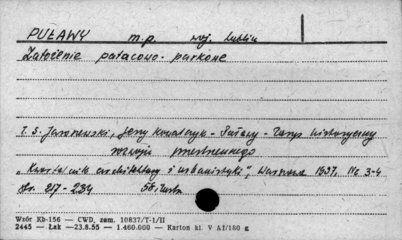 PUŁAWY m.p. woj. lublin
Założenie pałacowo-parkowe
T. S. Jaroszewski, Jerzy Kowalczyk - Puławy - Zarys historyczny
rozwoju przestrzennego
"Kwartalnik architektury i urbanistyki", Warszawa 1957, Nr. 3-4
str. 217-234 56 ilustr.
Wzór Kb-156 — CWD, zam. 10837/T-1/II
2445 — Łak —23.8.55 — 1.460.000 — Karton kl. V Af/180 g